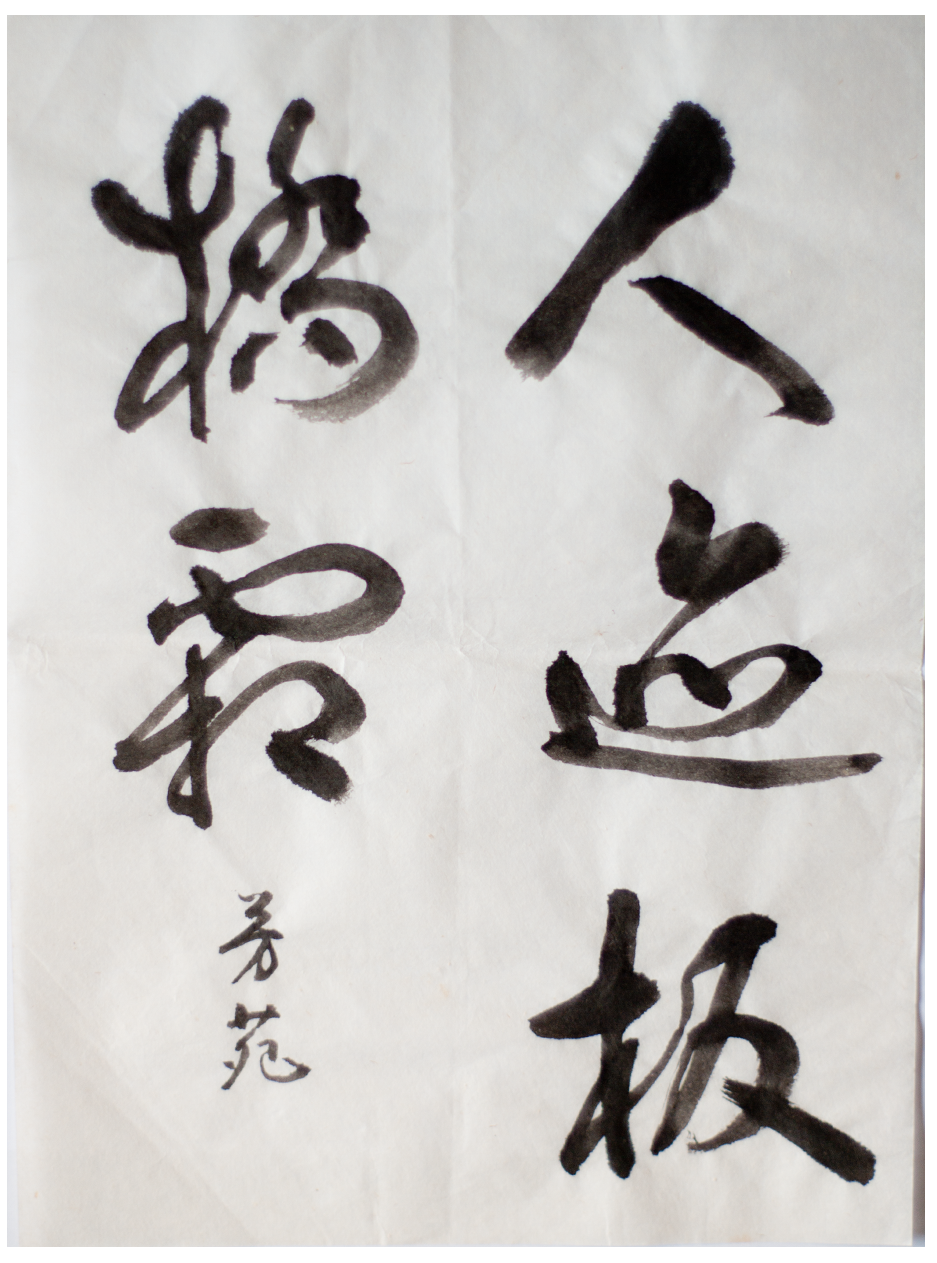 人迹板
橋霜
芳苑